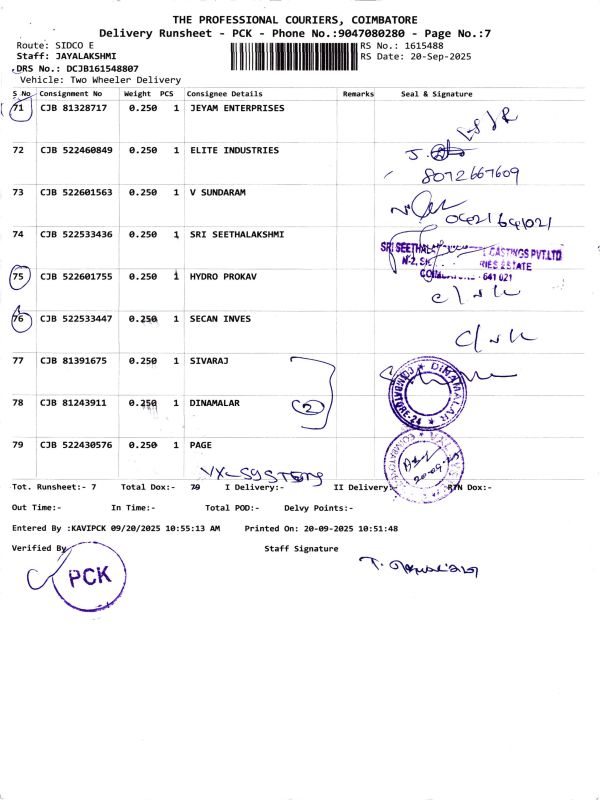 THE PROFESSIONAL COURIERS, COIMBATORE
Delivery Runsheet - PCK - Phone No.:9047080280 - Page No.:7
Route: SIDCO E
RS No.: 1615488
Staff: JAYALAKSHMI
RS Date: 20-Sep-2025
DRS No.: DCJB161548807
Vehicle: Two Wheeler Delivery
S No Consignment No Weight PCS Consignee Details Remarks Seal & Signature
71 CJB 81328717 0.250 1 JEYAM ENTERPRISES
72 CJB 522460849 0.250 1 ELITE INDUSTRIES
8072667609
73 CJB 522601563 0.250 1 V SUNDARAM
74 CJB 522533436 0.250 1 SRI SEETHALAKSHMI
CASTINGS PVT.LTD
ESTATE
641 021
75 CJB 522601755 0.250 1 HYDRO PROKAV
76 CJB 522533447 0.250 1 SECAN INVES
77 CJB 81391675 0.250 1 SIVARAJ
78 CJB 81243911 0.250 1 DINAMALAR
2
DINAMALAR
79 CJB 522430576 0.250 1 PAGE
VX-SYSTEMS
Tot. Runsheet:- 7 Total Dox:- 79 I Delivery:- II Delivery:- RTN Dox:-
Out Time:- In Time:- Total POD:- Delvy Points:-
Entered By :KAVIPCK 09/20/2025 10:55:13 AM Printed On: 20-09-2025 10:51:48
Verified By Staff Signature
PCK